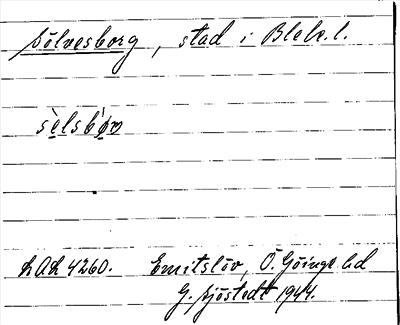 Sölvesborg, stad i Blek. l.
sèlsbǿr
LAL 4260. Emitslöv, Ö. Göinge hd
G. Sjöstedt 1944.